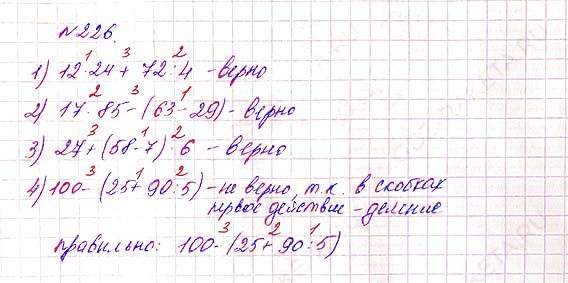 №226.
1) 12 ·¹ 24 +³ 72 :² 4 - верно
2) 17 ·² 85 -³ (63 -¹ 29) - верно
3) 27 +³ (58 -¹ 7) ·² 6 - верно
4) 100 -³ (25 +¹ 90 :² 5) - не верно, т.к. в скобках
первое действие - деление
правильно: 100 -³ (25 +² 90 :¹ 5)